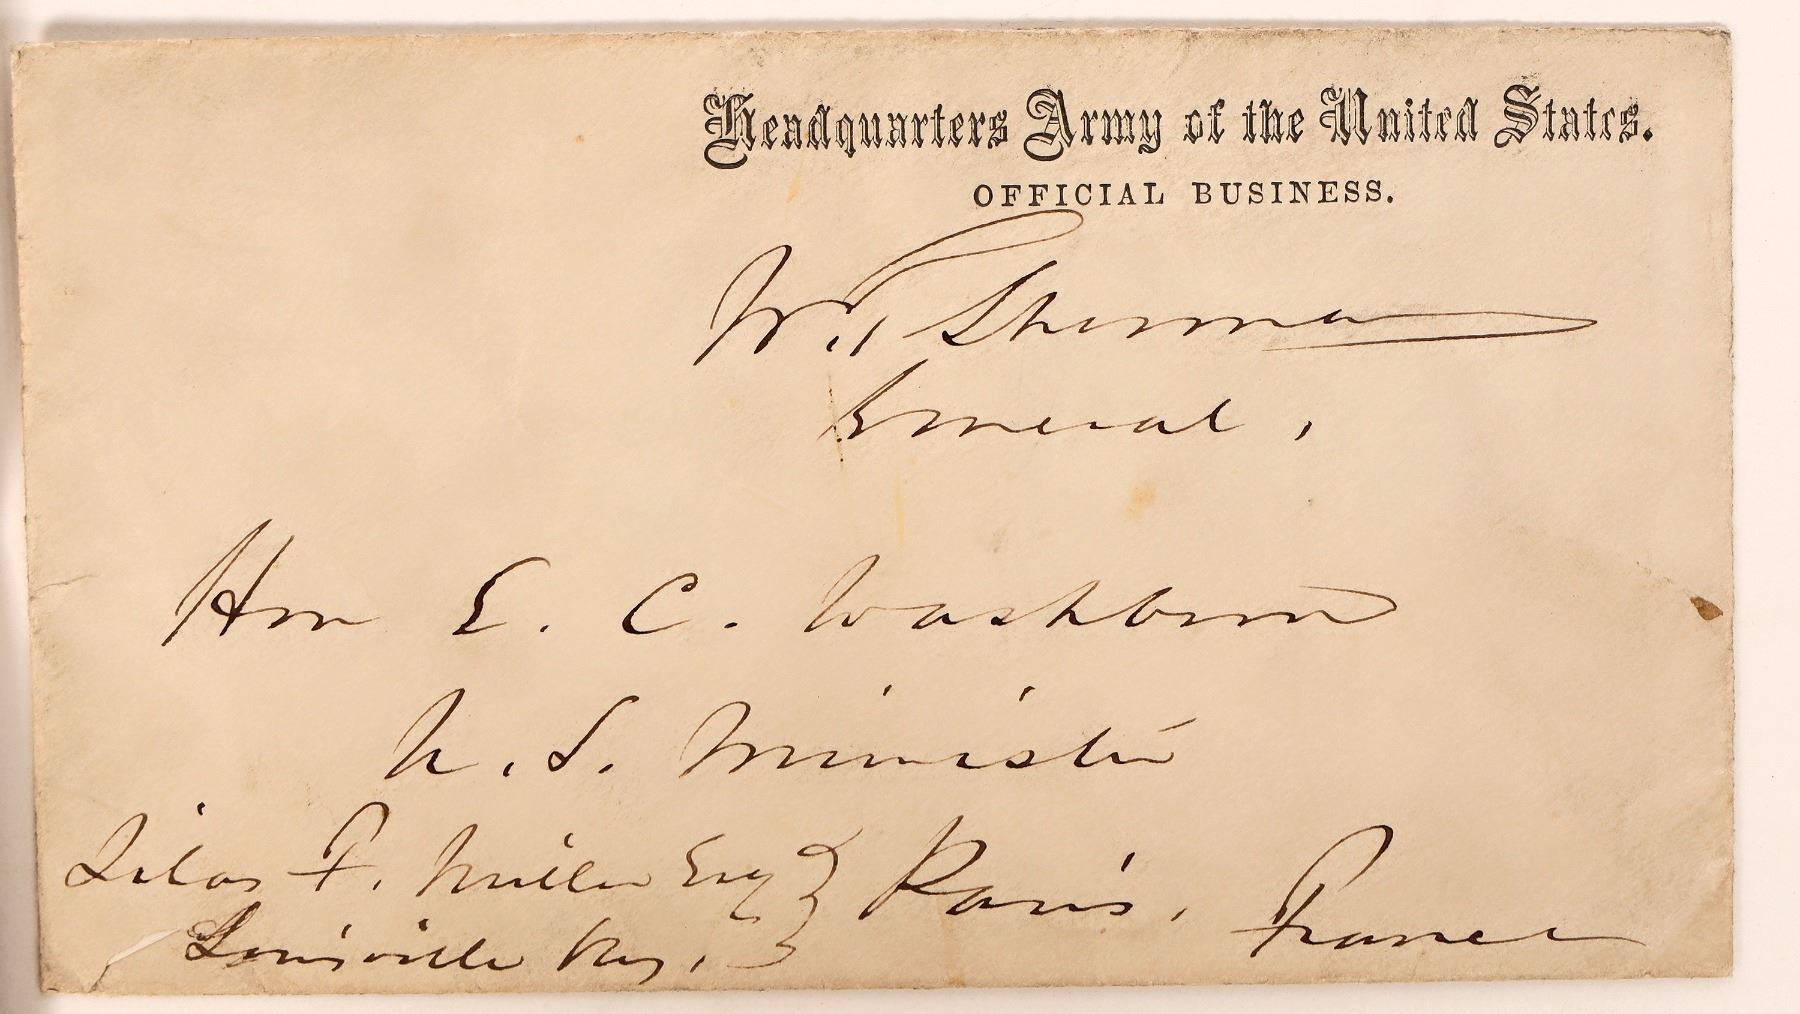 Headquarters Army of the United States.
OFFICIAL BUSINESS.
W. T. Sherman
General,
Hon E. C. Washburn
U. S. Minister
Paris, France
Silas F. Miller Esq
Louisville Ky.